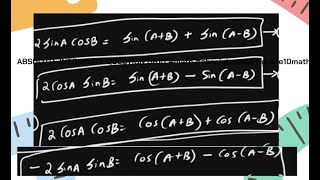 2 sinA cosB = sin (A+B) + sin (A-B)
2 cosA sinB = sin (A+B) - sin (A-B)
2 cosA cosB = cos (A+B) + cos (A-B)
- 2 sinA sinB = cos (A+B) - cos (A-B)